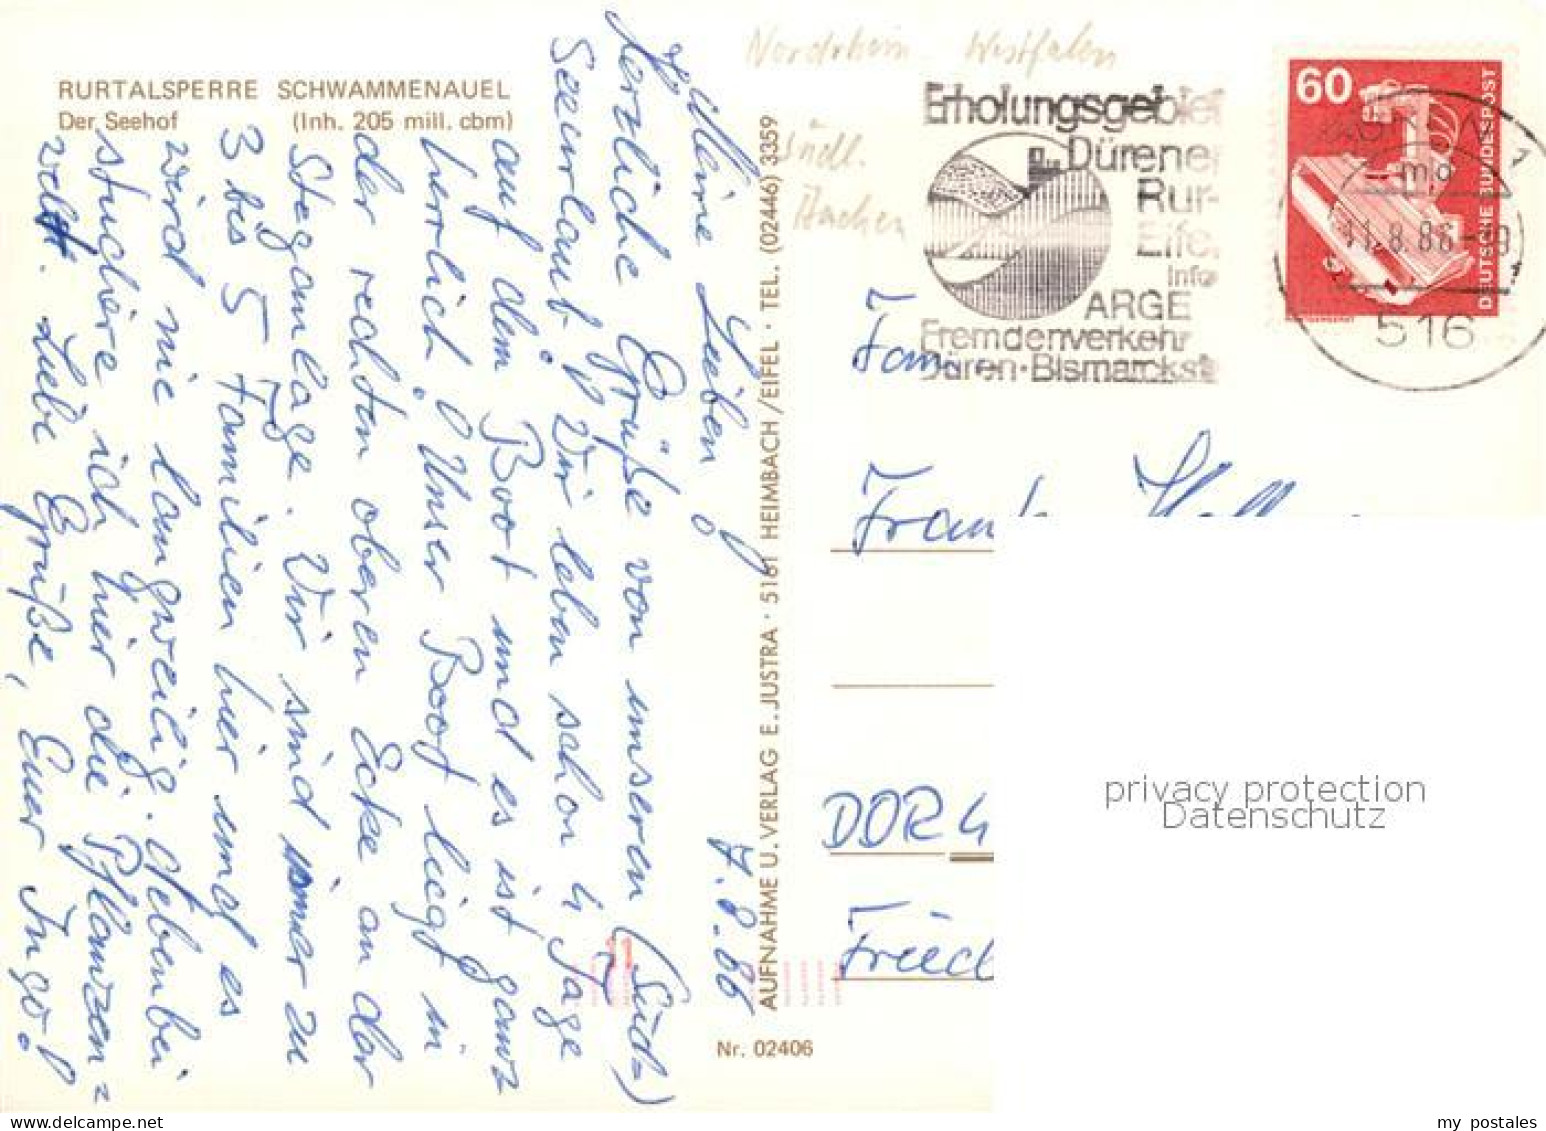 RURTALSPERRE SCHWAMMENAUEL
Der Seehof (Inh. 205 mill. cbm)
7.8.86
Meine Lieben!
Herzliche Grüße von unseren (Süd-)
Seeurlaub! Wir leben schon 4 Tage
auf dem Boot und es ist ganz
herrlich! Unser Boot liegt in
der rechten oberen Ecke an der
Steganlage. Wir sind immer zu
3 bis 5 Familien hier und es
wird nie langweilig. Nebenbei
studiere ich hier die Pflanzen=
welt. Liebe Grüße, Euer Ingo!
AUFNAHME U. VERLAG E. JUSTRA · 5161 HEIMBACH/EIFEL · TEL. (02446) 3359
Nr. 02406
Nordrhein-Westfalen
Südl.
Aachen
Erholungsgebiet
Dürener
Rur-
Eifel
Info
ARGE
Fremdenverkehr
Düren·Bismarckstr
60
DEUTSCHE BUNDESPOST
1
md
11.8.86-9
516
Fam.
Frank
DDR 4
Fried
privacy protection
Datenschutz
my postales